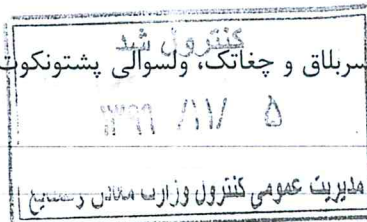 کنترول شد
سربلاق و چغاتک، ولسوالی پشتونکوت
۱۳۹۹ /۱۱/ ۵
مدیریت عمومی کنترول وزارت معادن و صنایع